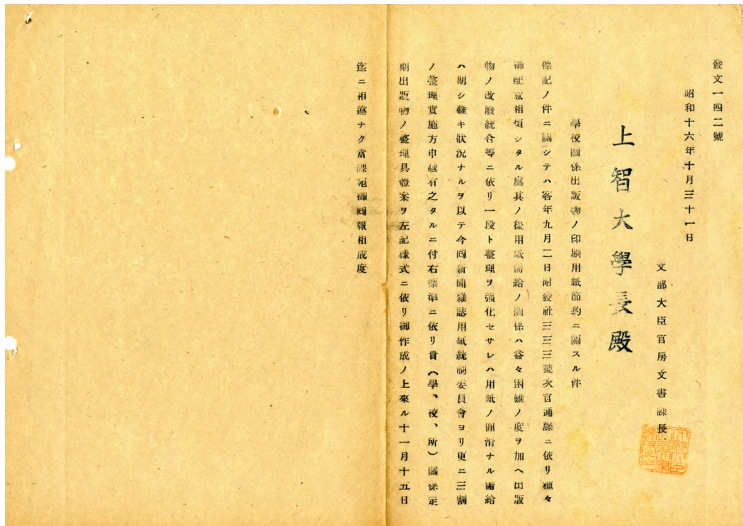 發文一四二號
昭和十六年十月三十一日
文部大臣官房文書課長
上智大學長殿
學校關係出版物ノ印刷用紙節約ニ關スル件
標記ノ件ニ關シテハ客年九月二日附發社三三三號次官通牒ニ依リ種々
御配意相煩シタル處其ノ後用紙需給ノ關係ハ益々困難ノ度ヲ加ヘ出版
物ノ改廢統合等ニ依リ一段ト整理ヲ強化セサレハ用紙ノ圓滑ナル需給
ハ期シ難キ狀況ナルヲ以テ今囘新聞雜誌用紙統制委員會ヨリ更ニ三割
ノ整理實施方申越有之タルニ付右標準ニ依リ貴(學、校、所)關係定
期出版物ノ整理具體案ヲ左記樣式ニ依リ御作成ノ上來ル十一月十五日
迄ニ相違ナク當課宛御囘報相成度